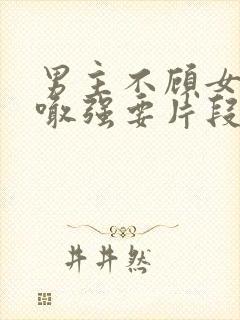 男主不顾女
噉强要片段
井井然